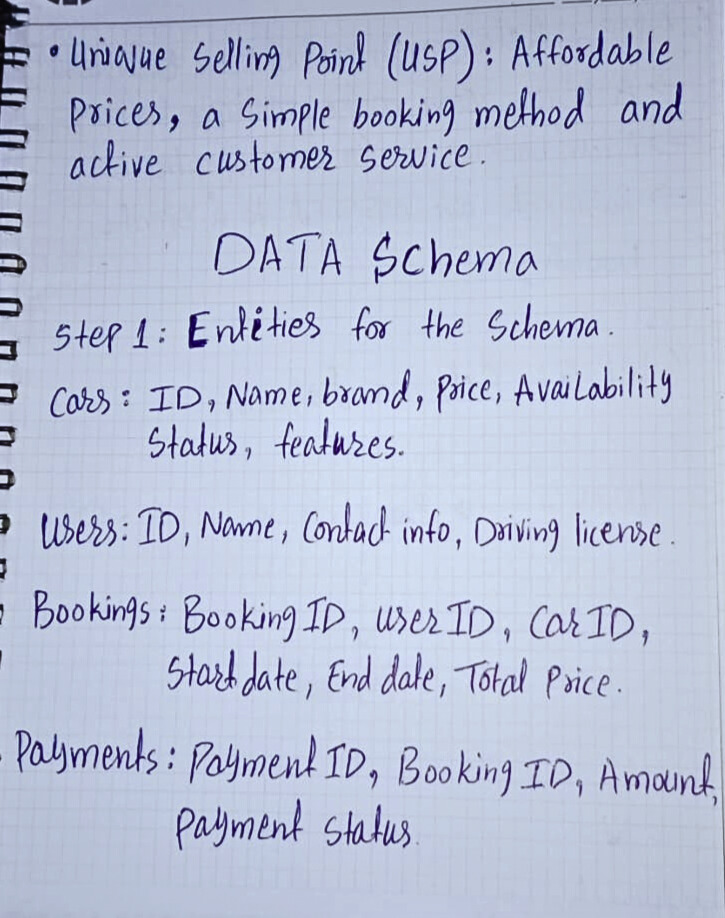 • Unique Selling Point (USP): Affordable
Prices, a Simple booking method and
active customer service.
DATA Schema
Step 1: Entities for the Schema.
Cars: ID, Name, brand, Price, Availability
Status, features.
Users: ID, Name, Contact info, Driving license.
Bookings: Booking ID, user ID, Car ID,
Start date, End date, Total Price.
Payments: Payment ID, Booking ID, Amount,
Payment Status.